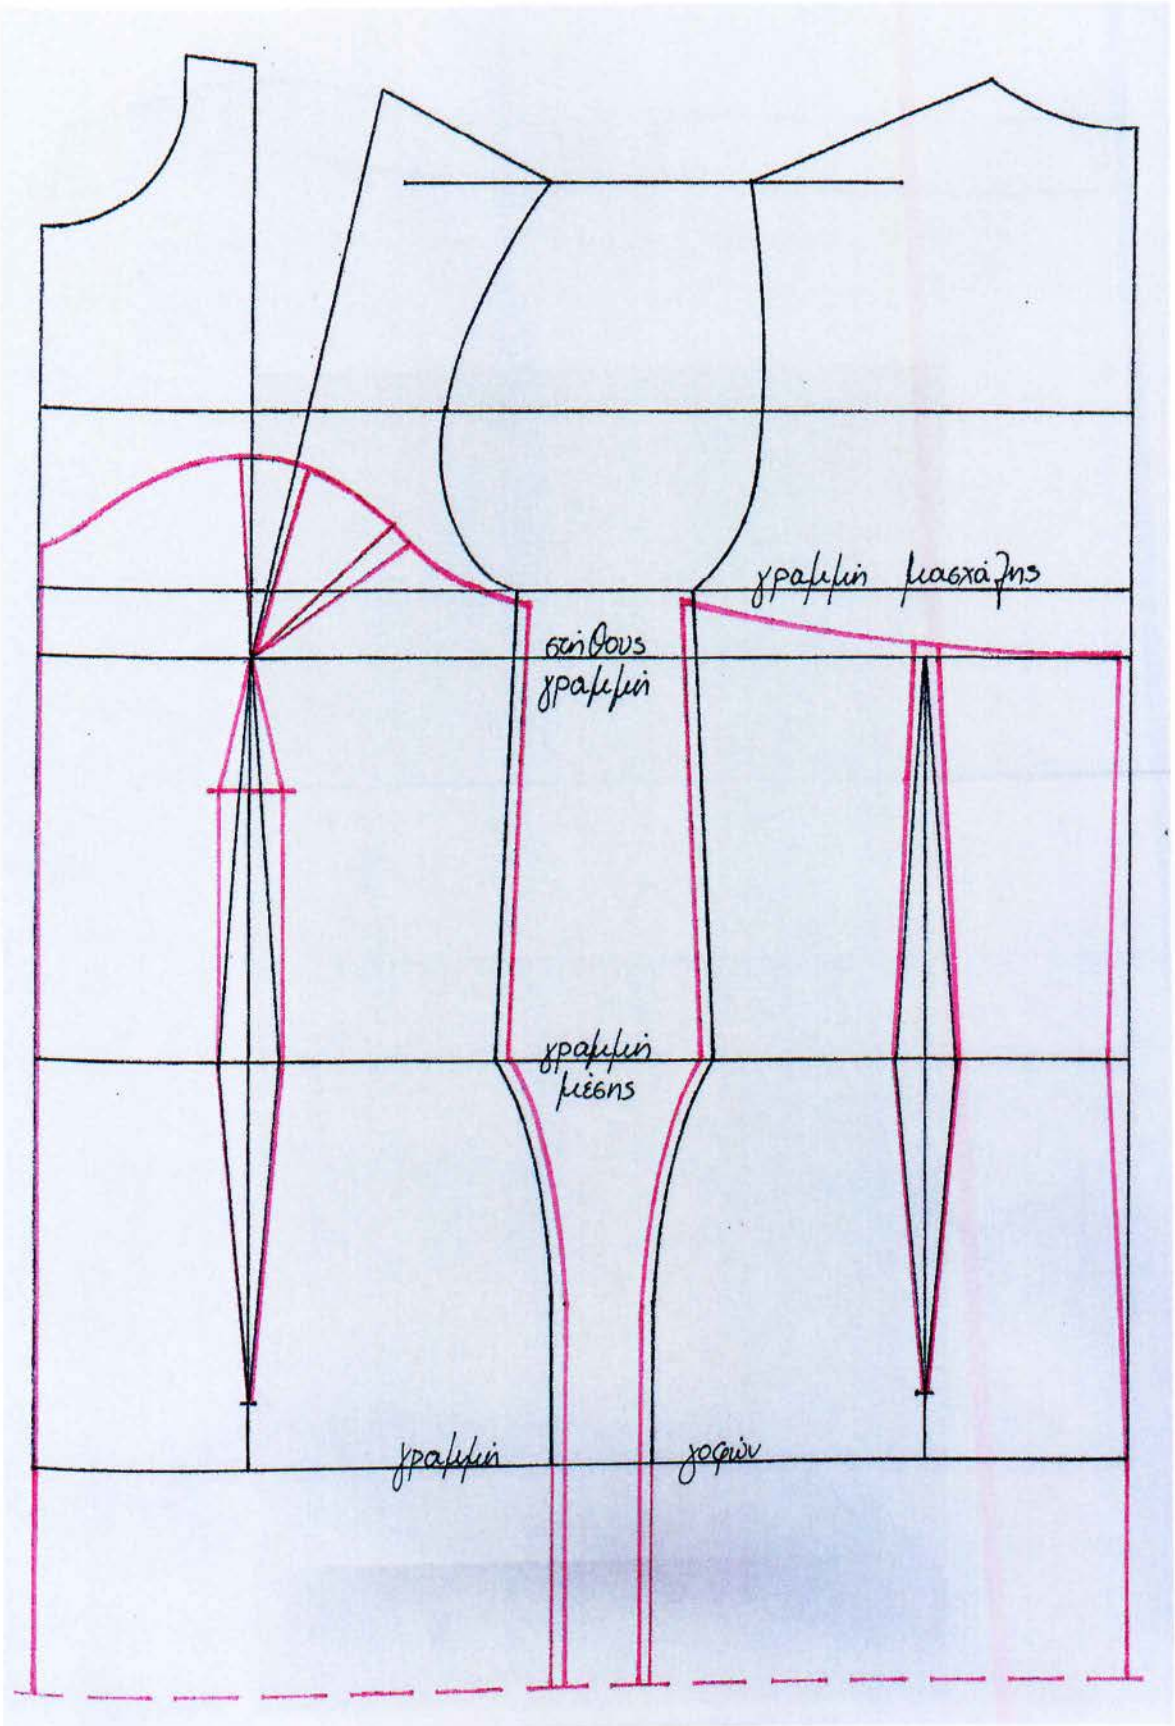 γραμμή μασχάλης
στήθους
γραμμή
γραμμή
μέσης
γραμμή γοφών